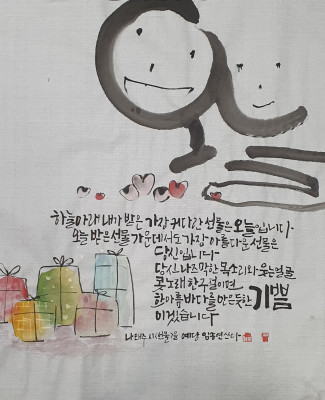 하늘 아래 내가 받은 가장 커다란 선물은 오늘입니다
오늘 받은 선물 가운데서도 가장 아름다운 선물은
당신입니다
당신 나즈막한 목소리와 웃는 얼굴
콧노래 한구절이면
한아름 바다를 안은듯한 기쁨
이겠습니다
나태주 시 선물